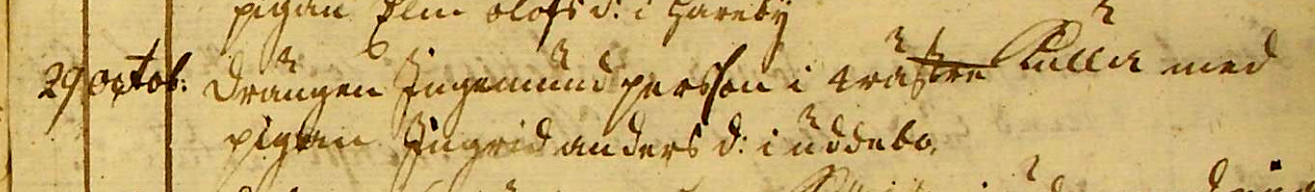 pigan Elin olofs d: i Hareby
29 octob: Drängen Ingemund persson i Kulla med
pigan Ingrid anders d: i uddebo.